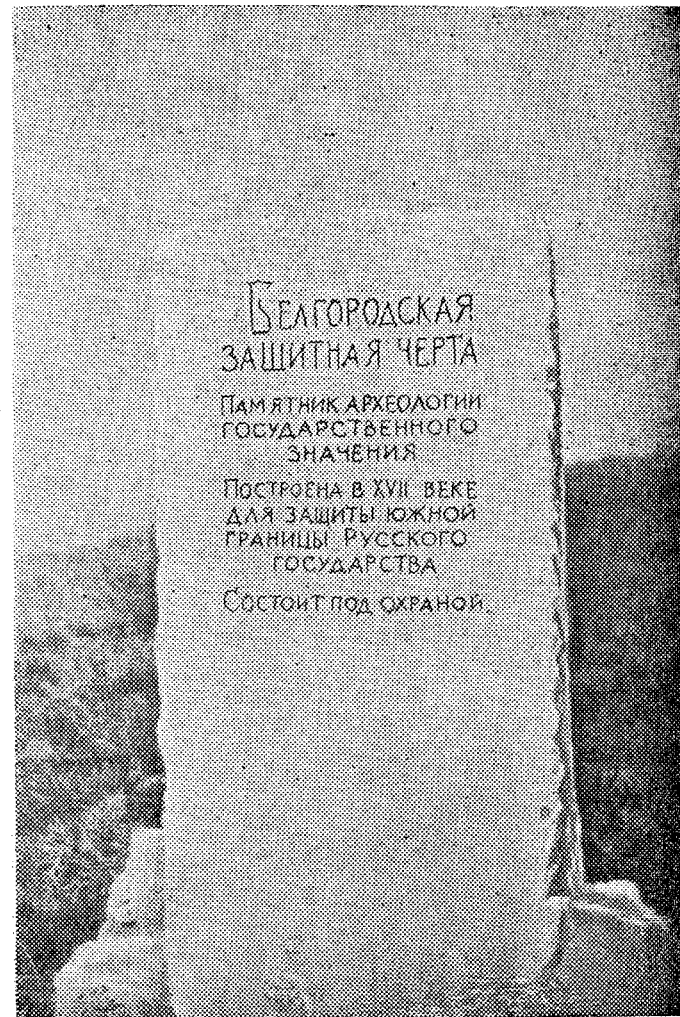 БЕЛГОРОДСКАЯ
ЗАЩИТНАЯ ЧЕРТА
ПАМЯТНИК АРХЕОЛОГИИ
ГОСУДАРСТВЕННОГО
ЗНАЧЕНИЯ
ПОСТРОЕНА В XVII ВЕКЕ
ДЛЯ ЗАЩИТЫ ЮЖНОЙ
ГРАНИЦЫ РУССКОГО
ГОСУДАРСТВА
СОСТОИТ ПОД ОХРАНОЙ.